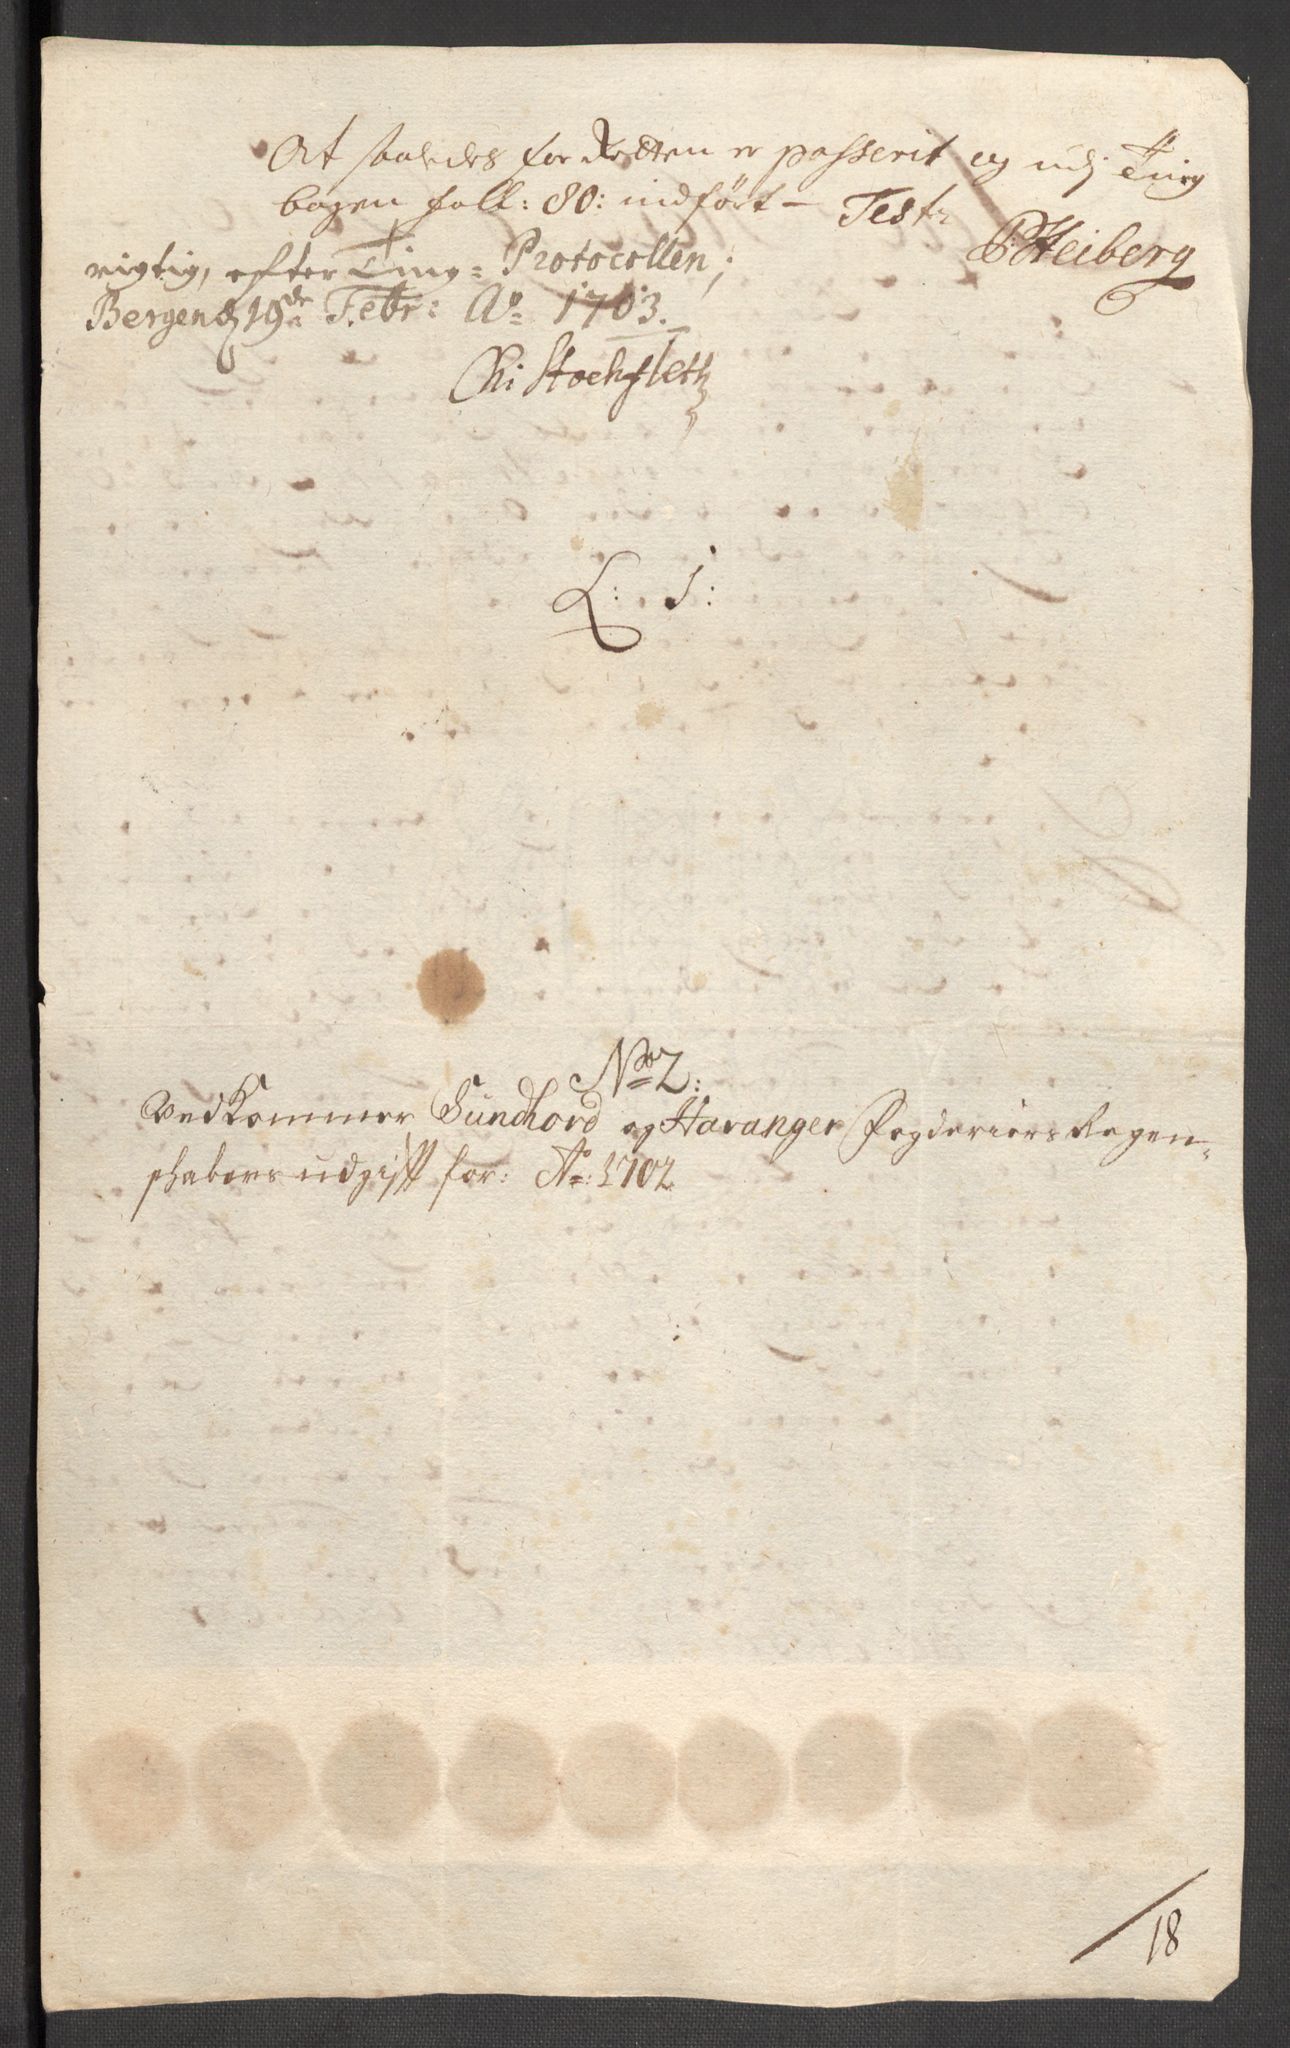 At saaledes for Retten er passerit og udj Ting
bogen foll: 80: indført – Test:
PHeiberg
rigtig, efter Ting= Protocollen;
Bergen d 19de Febr: Ao 1703.
Chr Stochfleth
L: S:
No 2:
Vedkommer Sundhord og Havanger Fogderiers Regen-
skabers udgifft for: Ao: 1702
18